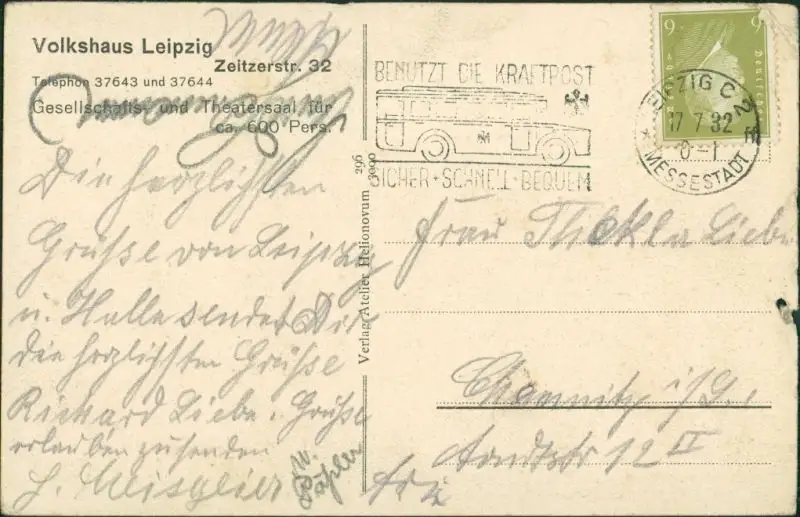 Volkshaus Leipzig
Zeitzerstr. 32
Telephon 37643 und 37644
Gesellschafts- und Theatersaal für
ca. 600 Pers.
Die herzlichsten
Grüsse von Leipzig
u. Halle sendet Dir
die herzlichsten Grüsse
Richard Liebe. Grüsse
erlauben zu senden
u.
Verlag Atelier Helionovum
296
3000
BENUTZT DIE KRAFTPOST
SICHER + SCHNELL + BEQUEM
6 6
LEIPZIG C 2
17 7 32
0-1
MESSESTADT
Frau Thekla Liebe
Chemnitz i/S.,
12 II